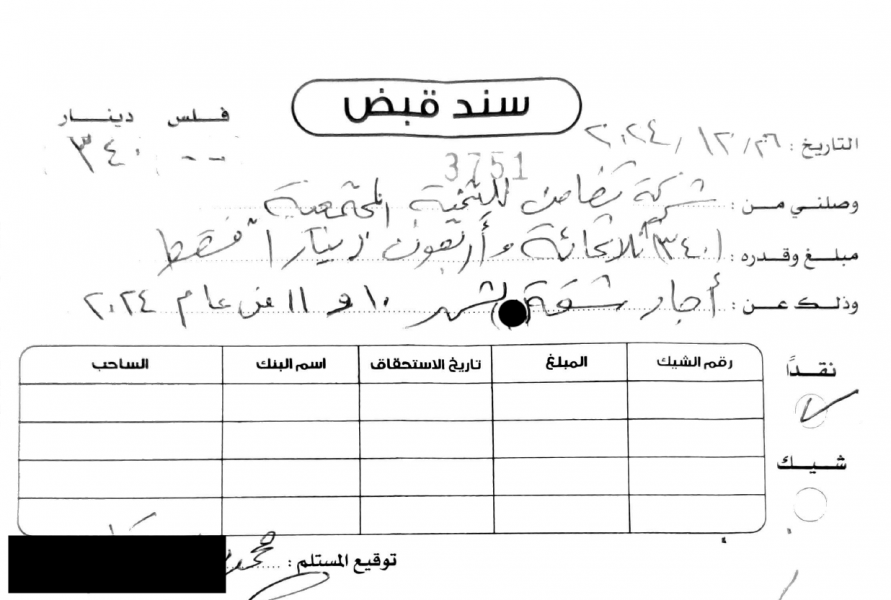 سند قبض
فلس دينار
-- ٣٤٠
التاريخ : ٢٦/ ١٢/ ٢٠٢٤
3751
وصلني من : شركة تضامن للتنمية المجتمعية
مبلغ وقدره : (٣٤٠) ثلاثمائة وأربعون ديناراً فقط
وذلك عن : أجار شقة ( ) لشهر ١٠ و ١١ من عام ٢٠٢٤
نقداً
رقم الشيك المبلغ تاريخ الاستحقاق اسم البنك الساحب
شيك
توقيع المستلم : محمد